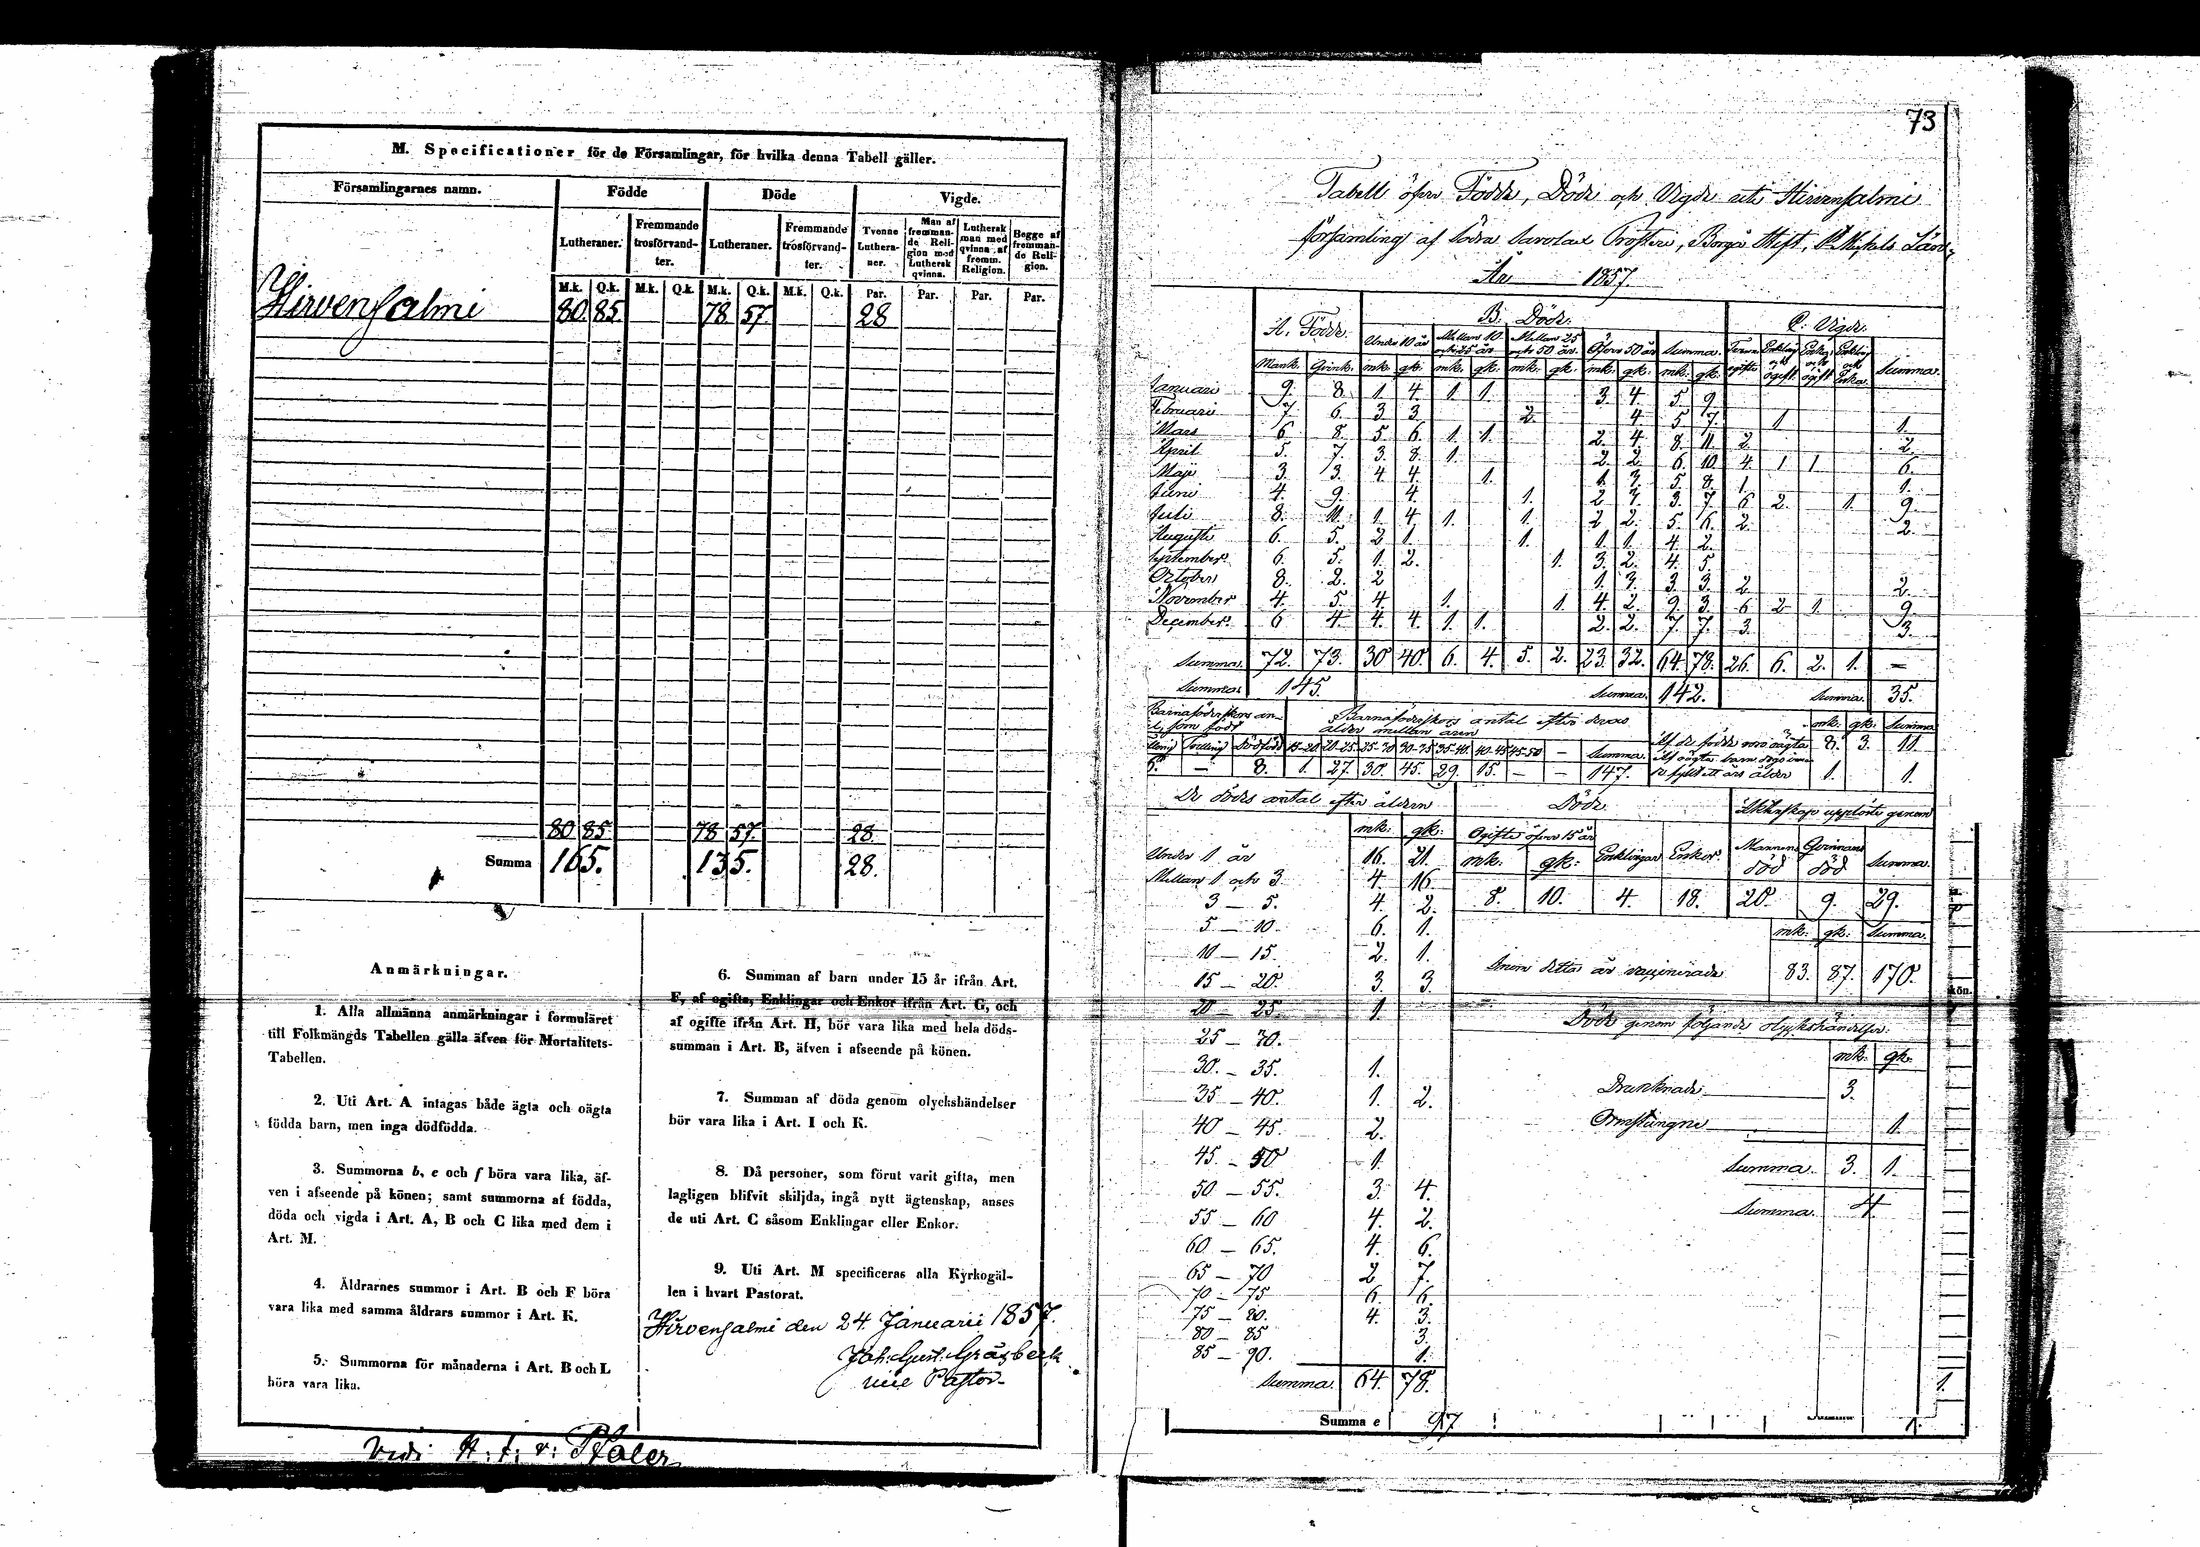 M. Specificationer för de Församlingar, för hvilka denna Tabell gäller.
Församlingarnes namn. Födde Döde Vigde.
Lutheraner. Fremmande trosförvandter. Lutheraner. Fremmande trosförvandter. Tvenne Lutheraner. Man af fremmande Religion med Luthersk qvinna. Luthersk man med qvinna af fremm. Religion. Begge af fremmande Religion.
M.k. Q.k. M.k. Q.k. M.k. Q.k. M.k. Q.k. Par. Par. Par. Par.
Hirvensalmi 80. 85. 78 57. 28
80 85. 78 57. 28.
Summa 165. 135. 28.
Anmärkningar.
1. Alla allmänna anmärkningar i formuläret
till Folkmängds Tabellen gälla äfven för Mortalitets-
Tabellen.
2. Uti Art. A intagas både ägta och oägta
födda barn, men inga dödfödda.
3. Summorna b, e och f böra vara lika, äf-
ven i afseende på könen; samt summorna af födda,
döda och vigda i Art. A, B och C lika med dem i
Art. M.
4. Åldrarnes summor i Art. B och F böra
vara lika med samma åldrars summor i Art. K.
5. Summorna för månaderna i Art. B och L
böra vara lika.
6. Summan af barn under 15 år ifrån Art.
F, af ogifta, Enklingar och Enkor ifrån Art. G, och
af ogifte ifrån Art. H, bör vara lika med hela döds-
summan i Art. B, äfven i afseende på könen.
7. Summan af döda genom olyckshändelser
bör vara lika i Art. I och K.
8. Då personer, som förut varit gifta, men
lagligen blifvit skiljda, ingå nytt ägtenskap, anses
de uti Art. C såsom Enklingar eller Enkor.
9. Uti Art. M specificeras alla Kyrkogäl-
len i hvart Pastorat.
Hirvensalmi den 24 Januarii 1857.
Joh: Gust: Gräsbeck
vice Pastor
Vidi
73
Tabell öfver Födde, Döde och Vigde uti Hirvensalmi
församling af Södra Savolax Prosteri, Borgå Stift, St Michels Län,
År 1857.
A. Födde. B. Döde. C. Vigde.
Under 10 år Mellan 10 och 25 år Mellan 25 och 50 år. Öfver 50 år Summa. Tvenne ogifte Enkling och ogift. Enka och ogift Enkling och Enka Summa.
Mank. Qvink. mk. qk. mk. qk. mk. qk. mk. qk. mk. qk.
Januari 9. 8. 1. 4. 1. 1. 3. 4. 5. 9.
Februari 7. 6. 3. 3. 2. 4. 5. 7. 1 1.
Mars 6 8. 5. 6. 1. 1. 2. 4. 8. 11. 2. 2.
April 5. 7. 3. 8. 1. 2. 2. 6. 10. 4. 1 1 6.
Maji 3. 3. 4 4. 1. 1. 3. 5. 8. 1. 1.
Juni 4. 9. 4. 1. 2 3. 3. 7. 6 2. 1. 9.
Juli 8. 11. 1. 4. 1. 1. 2 2. 5. 6. 2. 2.
Augusti 6. 5. 2 1. 1. 1. 1. 4. 2.
September 6. 5. 1. 2. 1. 3. 2. 4. 5.
October 8. 2. 2 1. 3. 3. 3. 2 2.
November 4. 5. 4. 1. 1. 4. 2. 9. 3. 6 2 1. 9.
December 6 4. 4. 4. 1. 1. 2. 2. 7. 7. 3. 3.
Summa. 72. 73. 30 40. 6. 4. 5. 2. 23. 32. 64. 78. 26. 6. 2. 1. —
Summa 145. Summa. 142. Summa. 35.
Barnaföderskors antal efter deras
ålder mellan åren
mk. qk. Summa
15-20 20-25. 25-30 30-35 35-40. 40-45 45-50 — Summa.
Af de födde voro oägta 8. 3. 11.
6. — 8. 1. 27. 30. 45. 29. 15. — — 147.
1. 1.
De dödes antal efter åldern Döde. Äktenskap upplöste genom
mk: qk: Ogifte öfver 15 år Enklingar Enkor. Mannens död Qvinnans död Summa.
mk: qk:
Under 1 år 16. 21.
Mellan 1 och 3. 4. 16.
8. 10. 4. 18. 20. 9. 29.
3 — 5. 4. 2.
5 — 10. 6. 1.
mk: qk: Summa.
10 — 15. 2. 1.
Inom detta år vaccinerade 83. 87. 170.
15 — 20. 3. 3
20 — 25. 1.
Döde genom följande olyckshändelser.
25 — 30.
mk: qk:
30. — 35. 1.
35 — 40. 1. 2.
Drunknade 3.
40 — 45. 2.
Ormstungne 1.
45. — 50 1.
Summa. 3. 1.
50 — 55. 3. 4.
Summa. 4
55 — 60 4. 2.
60 — 65. 4. 6.
65 — 70 2 7.
70 — 75 6. 6.
75 — 80. 4. 3.
80 — 85 3.
85 — 90. 1.
Summa. 64. 78.
1.
Summa e 97 1.
kön.